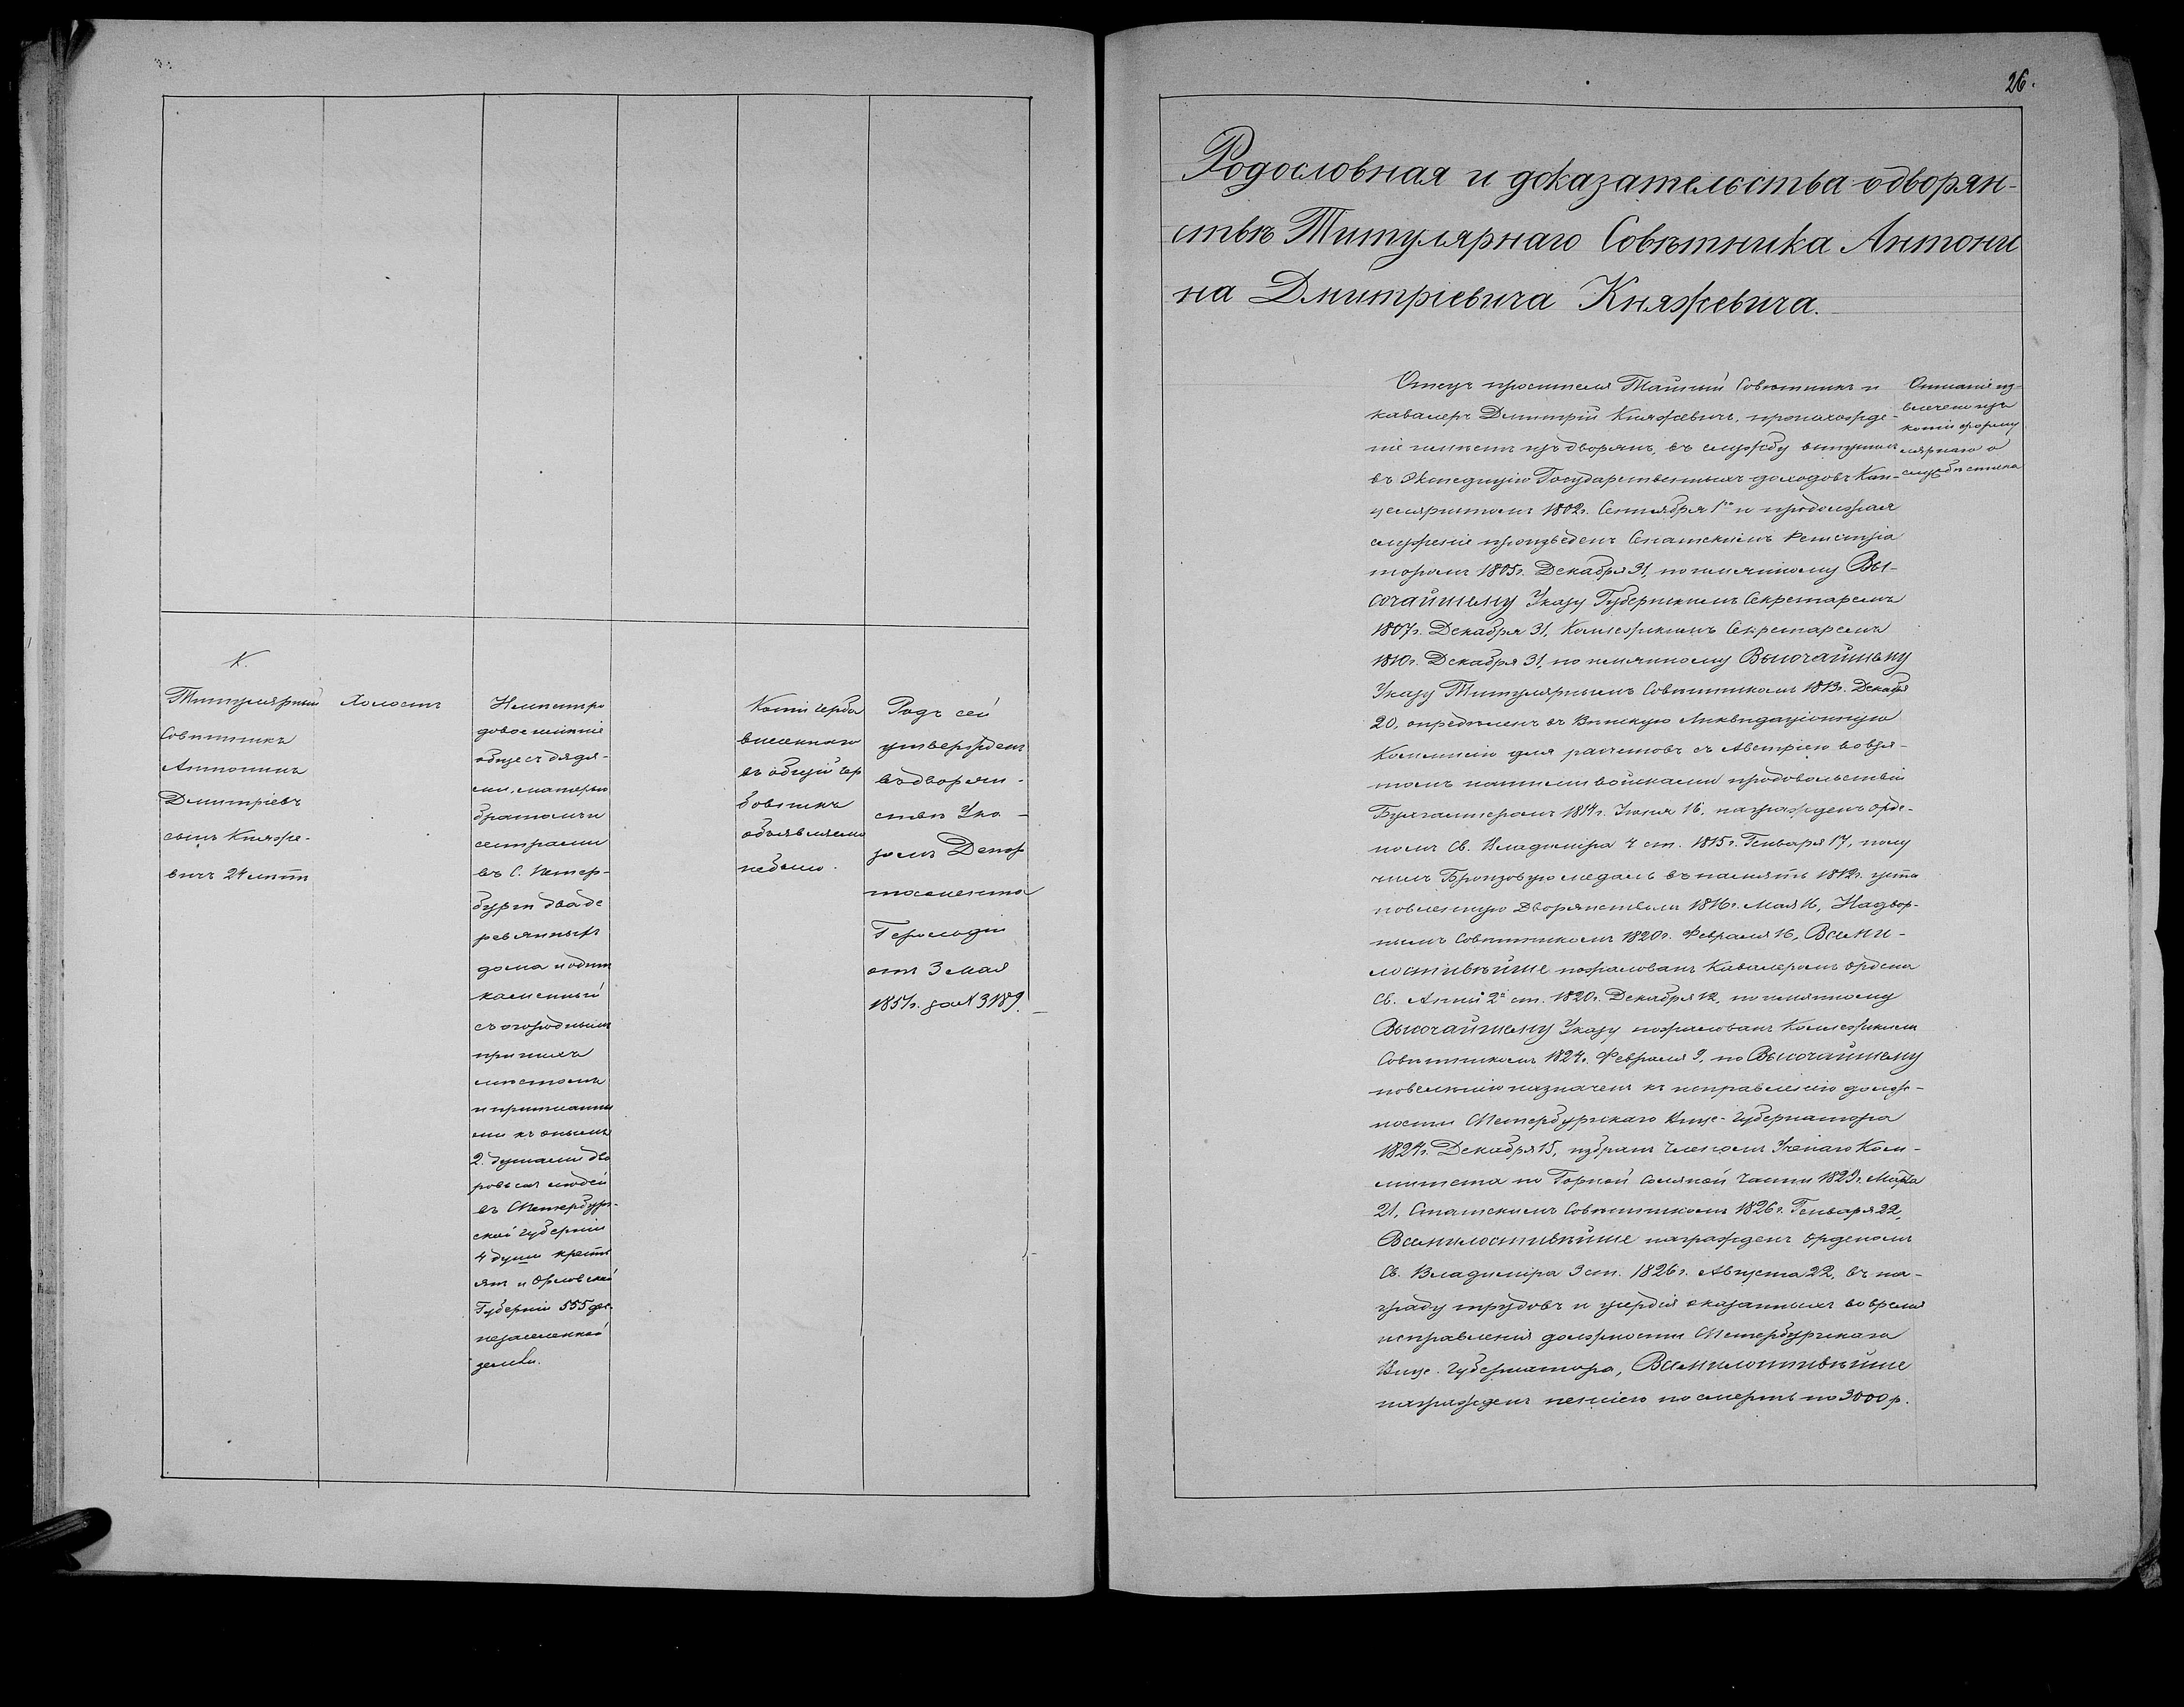 К.
Титулярный
Совѣтникъ
Антонинъ
Дмитріевъ
сынъ Княже-
вичъ 24 лѣтъ
Холостъ
Имѣетъ ро
довое имѣніе
обще съ дядя-
ми, матерью
братомъ и
сестрами
въ С. Петер-
бургѣ два де
ревянныхъ
дома и одинъ
каменный
съ огороднымъ
при нихъ
мѣстомъ
и приписанны
ми къ онымъ
2. душами дво
ровыхъ людей
въ СПетербург-
ской губерніи
4 души крестъ
янъ и Орловской
Губерніи 555 дес.
незаселенной
земли.
Копіи герба
внесеннаго
въ общій гер
бовникъ
объявляемо
небыло.
Родъ сей
утвержденъ
въ дворян-
ствѣ Ука-
зомъ Депар
тамента
Герольдіи
отъ 3 мая
1851г. за № 3189.
26.
Родословная и доказательства о дворян-
ствѣ Титулярнаго Совѣтника Антони
на Дмитріевича Княжевича.
Отецъ просителя Тайный Совѣтникъ и
кавалеръ Дмитрій Княжевичъ, происхожде-
ніе имѣетъ изъ дворянъ, въ службу вступилъ
въ Экспедицію Государственныхъ доходовъ Кан-
целяристомъ 1802г. Сентября 1го и продолжая
служеніе произведенъ Сенатскимъ Регистра
торомъ 1805г. Декабря 31, по имянному Вы-
сочайшему Указу Губернскимъ Секретаремъ
1807г. Декабря 31, Коллежскимъ Секретаремъ
1810г. Декабря 31, по имянному Высочайшему
Указу Титулярнымъ Совѣтникомъ 1813г. Декабря
20, опредѣленъ въ Вѣнскую Ликвидаціонную
Коммисію для расчетовъ съ Австріею во взя-
томъ нашими войсками продовольствіи
Бухгалтеромъ 1814г. Іюня 16, награжденъ орде-
номъ Св. Владиміра 4 ст. 1815г. Генваря 17, полу
чилъ Бронзовую медаль въ память 1812г. уста
новленную Дворянствомъ 1816г. Мая 16, Надвор-
нымъ Совѣтникомъ 1820г. Февраля 16, Всеми-
лостивѣйше пожалованъ Кавалеромъ ордена
Св. Анны 2й ст. 1820г. Декабря 12, по имянному
Высочайшему Указу пожалованъ Коллежскимъ
Совѣтникомъ 1824г. Февраля 9, по Высочайшему
повелѣнію назначенъ къ исправленію долж-
ности СПетербургскаго Вице-Губернатора
1824г. Декабря 15, избранъ Членомъ Ученаго Ком-
митета по Горной Соляной Части 1825г. Марта
21, Статскимъ Совѣтникомъ 1826г. Генваря 22,
Всемилостивѣйше награжденъ орденомъ
Св. Владиміра 3 ст. 1826г. Августа 22, въ на-
граду трудовъ и усердія оказанныхъ во время
исправленія должности СПетербургскаго
Вице-Губернатора, Всемилостивѣйше
награжденъ пенсіею по смерть по 3000 р.
Описаніе из-
влечено изъ
копіи форму
лярнаго о
службѣ списка